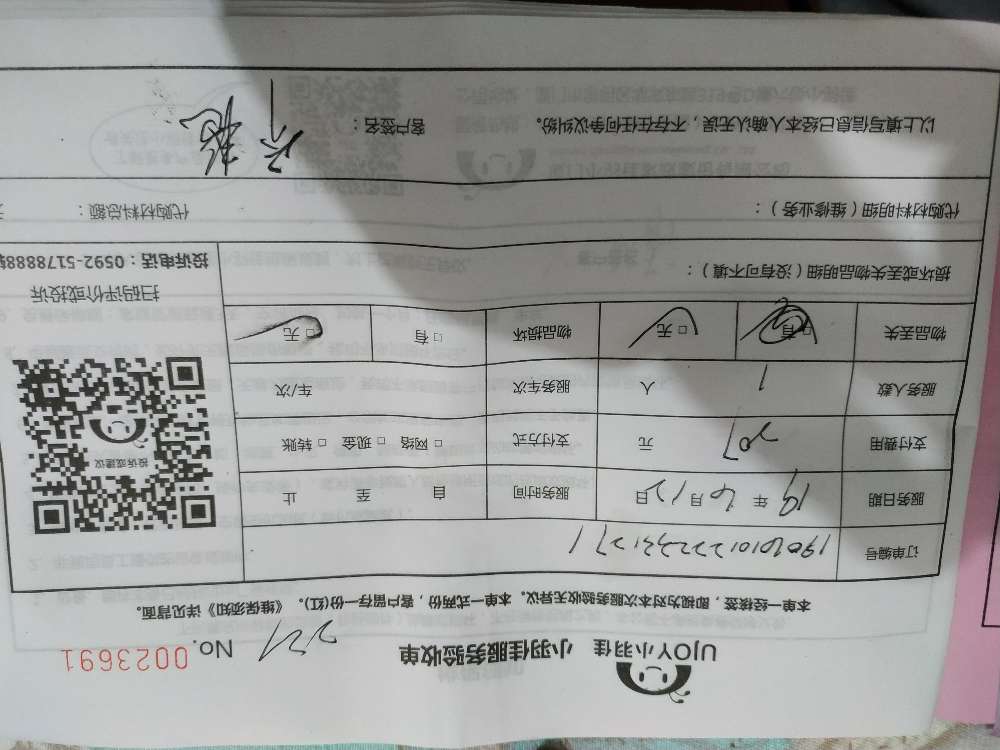 UJOY小羽佳 小羽佳服务验收单 No. 0023691
本单一经签, 即视为对本次服务验收无异议。本单一式两份, 客户留存一份(红)。《维保须知》详见背面。
订单编号
服务日期 19年6月12日 服务时间 自 至 止
支付费用 207 元 支付方式 □ 网络 □ 现金 □ 转账
服务人数 1 人 服务车次 车次
物品丢失 □ 有 □ 无 物品损坏 □ 有 □ 无
投诉或建议
扫码评价或投诉
投诉电话：0592-5178888转
损坏或丢失物品明细（没有可不填）：
代购材料明细（维修业务）： 代购材料总额：
以上填写信息已经本人确认无误，不存在任何争议纠纷。 客户签名：